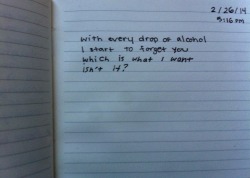 2/26/14
9:16 pm
with every drop of alcohol
I start to forget you
which is what I want
isn't it?